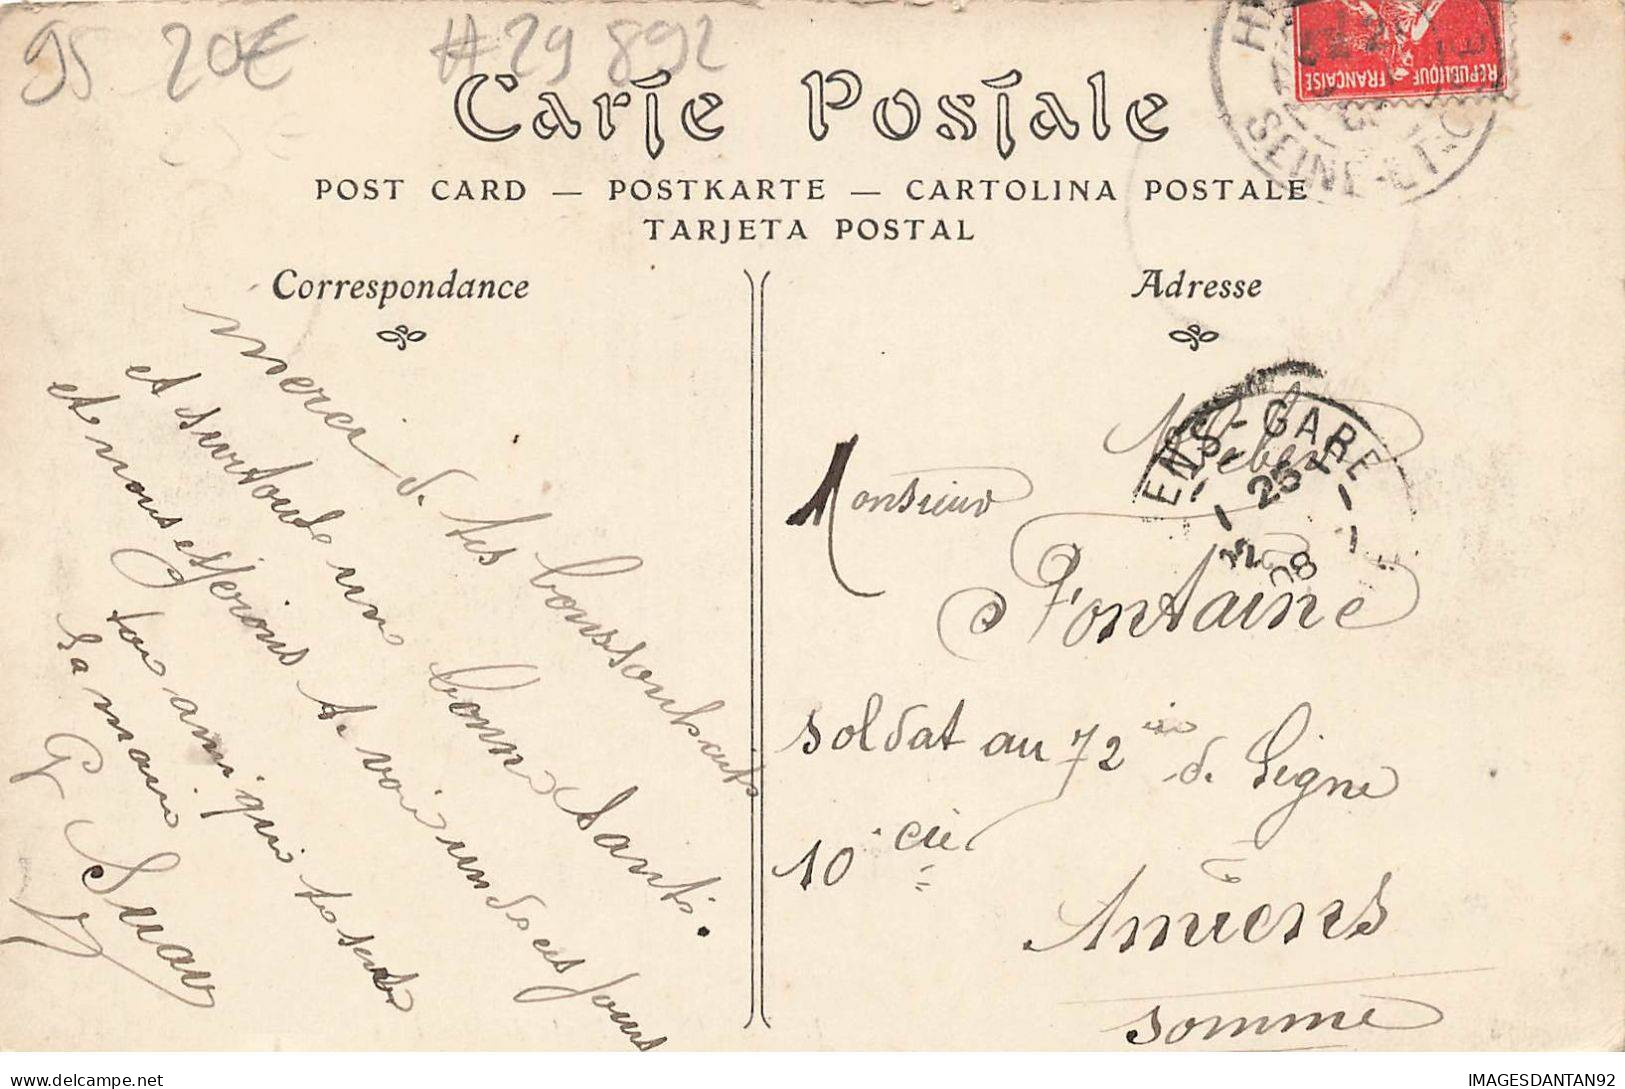 95 20€ #29892
Carte Postale
POST CARD — POSTKARTE — CARTOLINA POSTALE
TARJETA POSTAL
REPUBLIQUE FRANCAISE
SEINE-ET-O
Correspondance
Adresse
merci de tes bons souhaits
et surtout une bonne santé.
et nous esperions te voir un de ces jours
ton ami qui te serre
la main
G
ENS-GARE
25
08
Monsieur
Fontaine
soldat au 72 de Ligne
10 cie
Amiens
Somme
IMAGESDANTAN92
delcampe.net